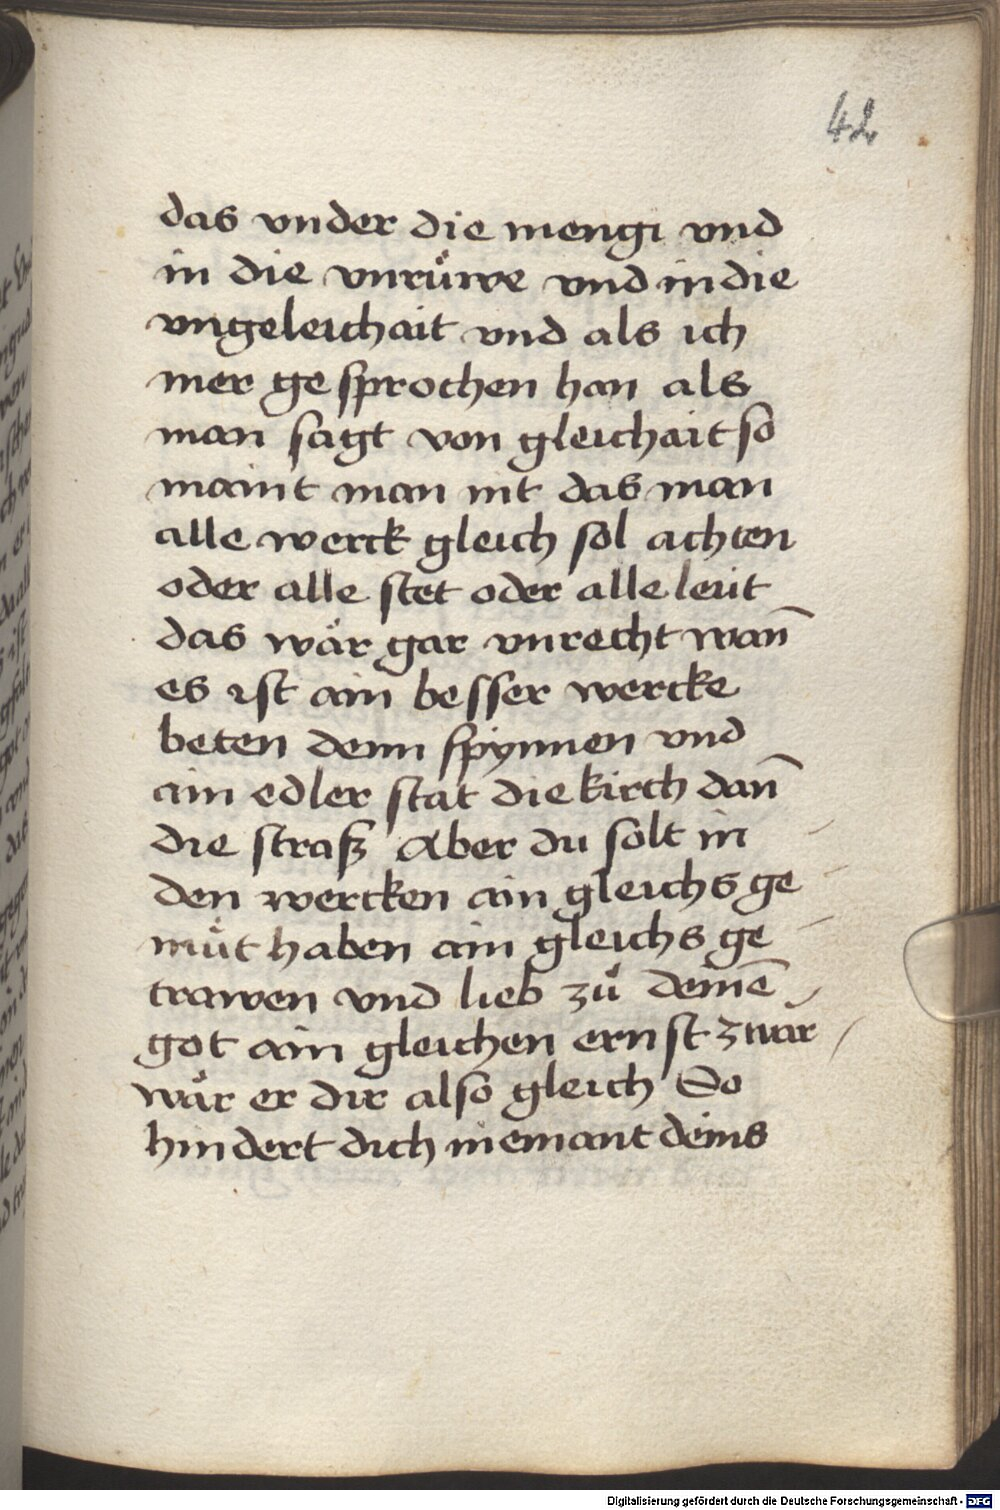 42
das vnder die mengi vnd
in die vnruͤwe vnd in die
vngeleichait vnd als ich
mer gesprochen han als
man sagt von gleichait so
maint man nit das man
alle werck gleich sol achten
oder alle stet oder alle leut
das waͤr gar vnrecht wan̄
es ist ain besser wercke
beten denn spynnen vnd
ain edler stat die kirch dan̄
die straß Aber du solt in
den wercken ain gleichs ge
muͤt haben ain gleichs ge
trawen vnd lieb zuͤ deinē
got ain gleichen ernst zwar
waͤr er dir also gleich So
hindert dich niemant deins
Digitalisierung gefördert durch die Deutsche Forschungsgemeinschaft - DFG